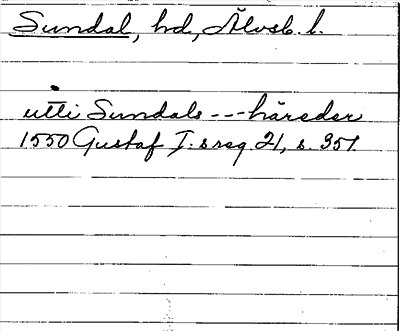 Sundal, hd, Älvsb. l.
utti Sundals --- häreder
1550 Gustaf I:s reg. 21, s. 351.